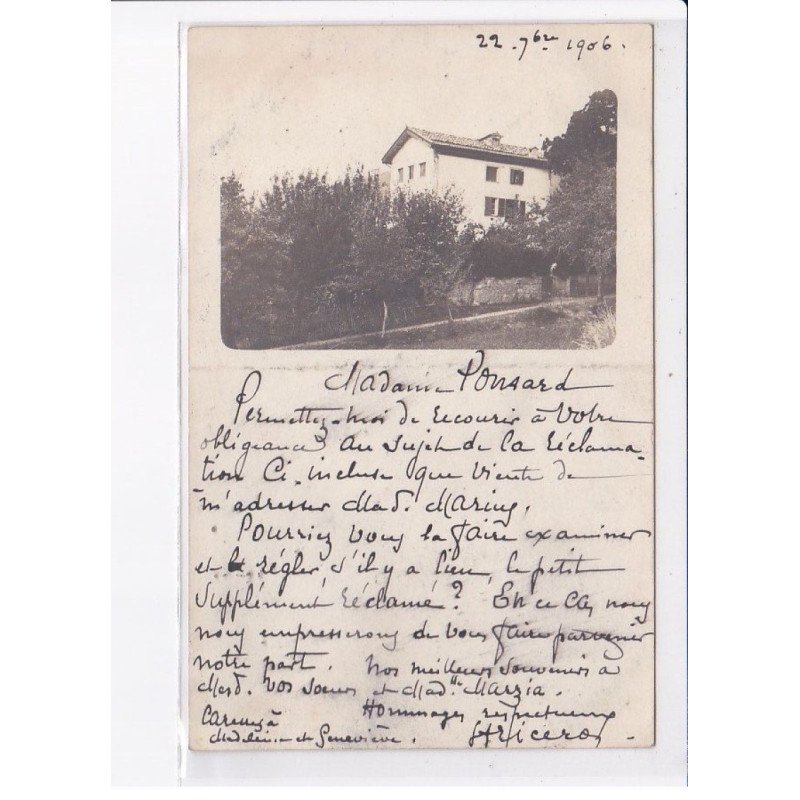 22 - 7bre 1906.
Madame Ponsard
Permettez-moi de recourir à votre
obligeance au sujet de la réclama-
tion Ci-incluse que vient de
m'adresser Mad. Marius.
Pourriez vous la faire examiner
et le régler s'il y a lieu, le petit
Supplément réclamé ? En ce cas, nous
nous empresserons de vous faire parvenir
notre part. Nos meilleurs souvenirs à
Mesd. vos sœurs et Madlle Marzia.
Hommages respectueux
Caresses à
Madeleine et Geneviève.